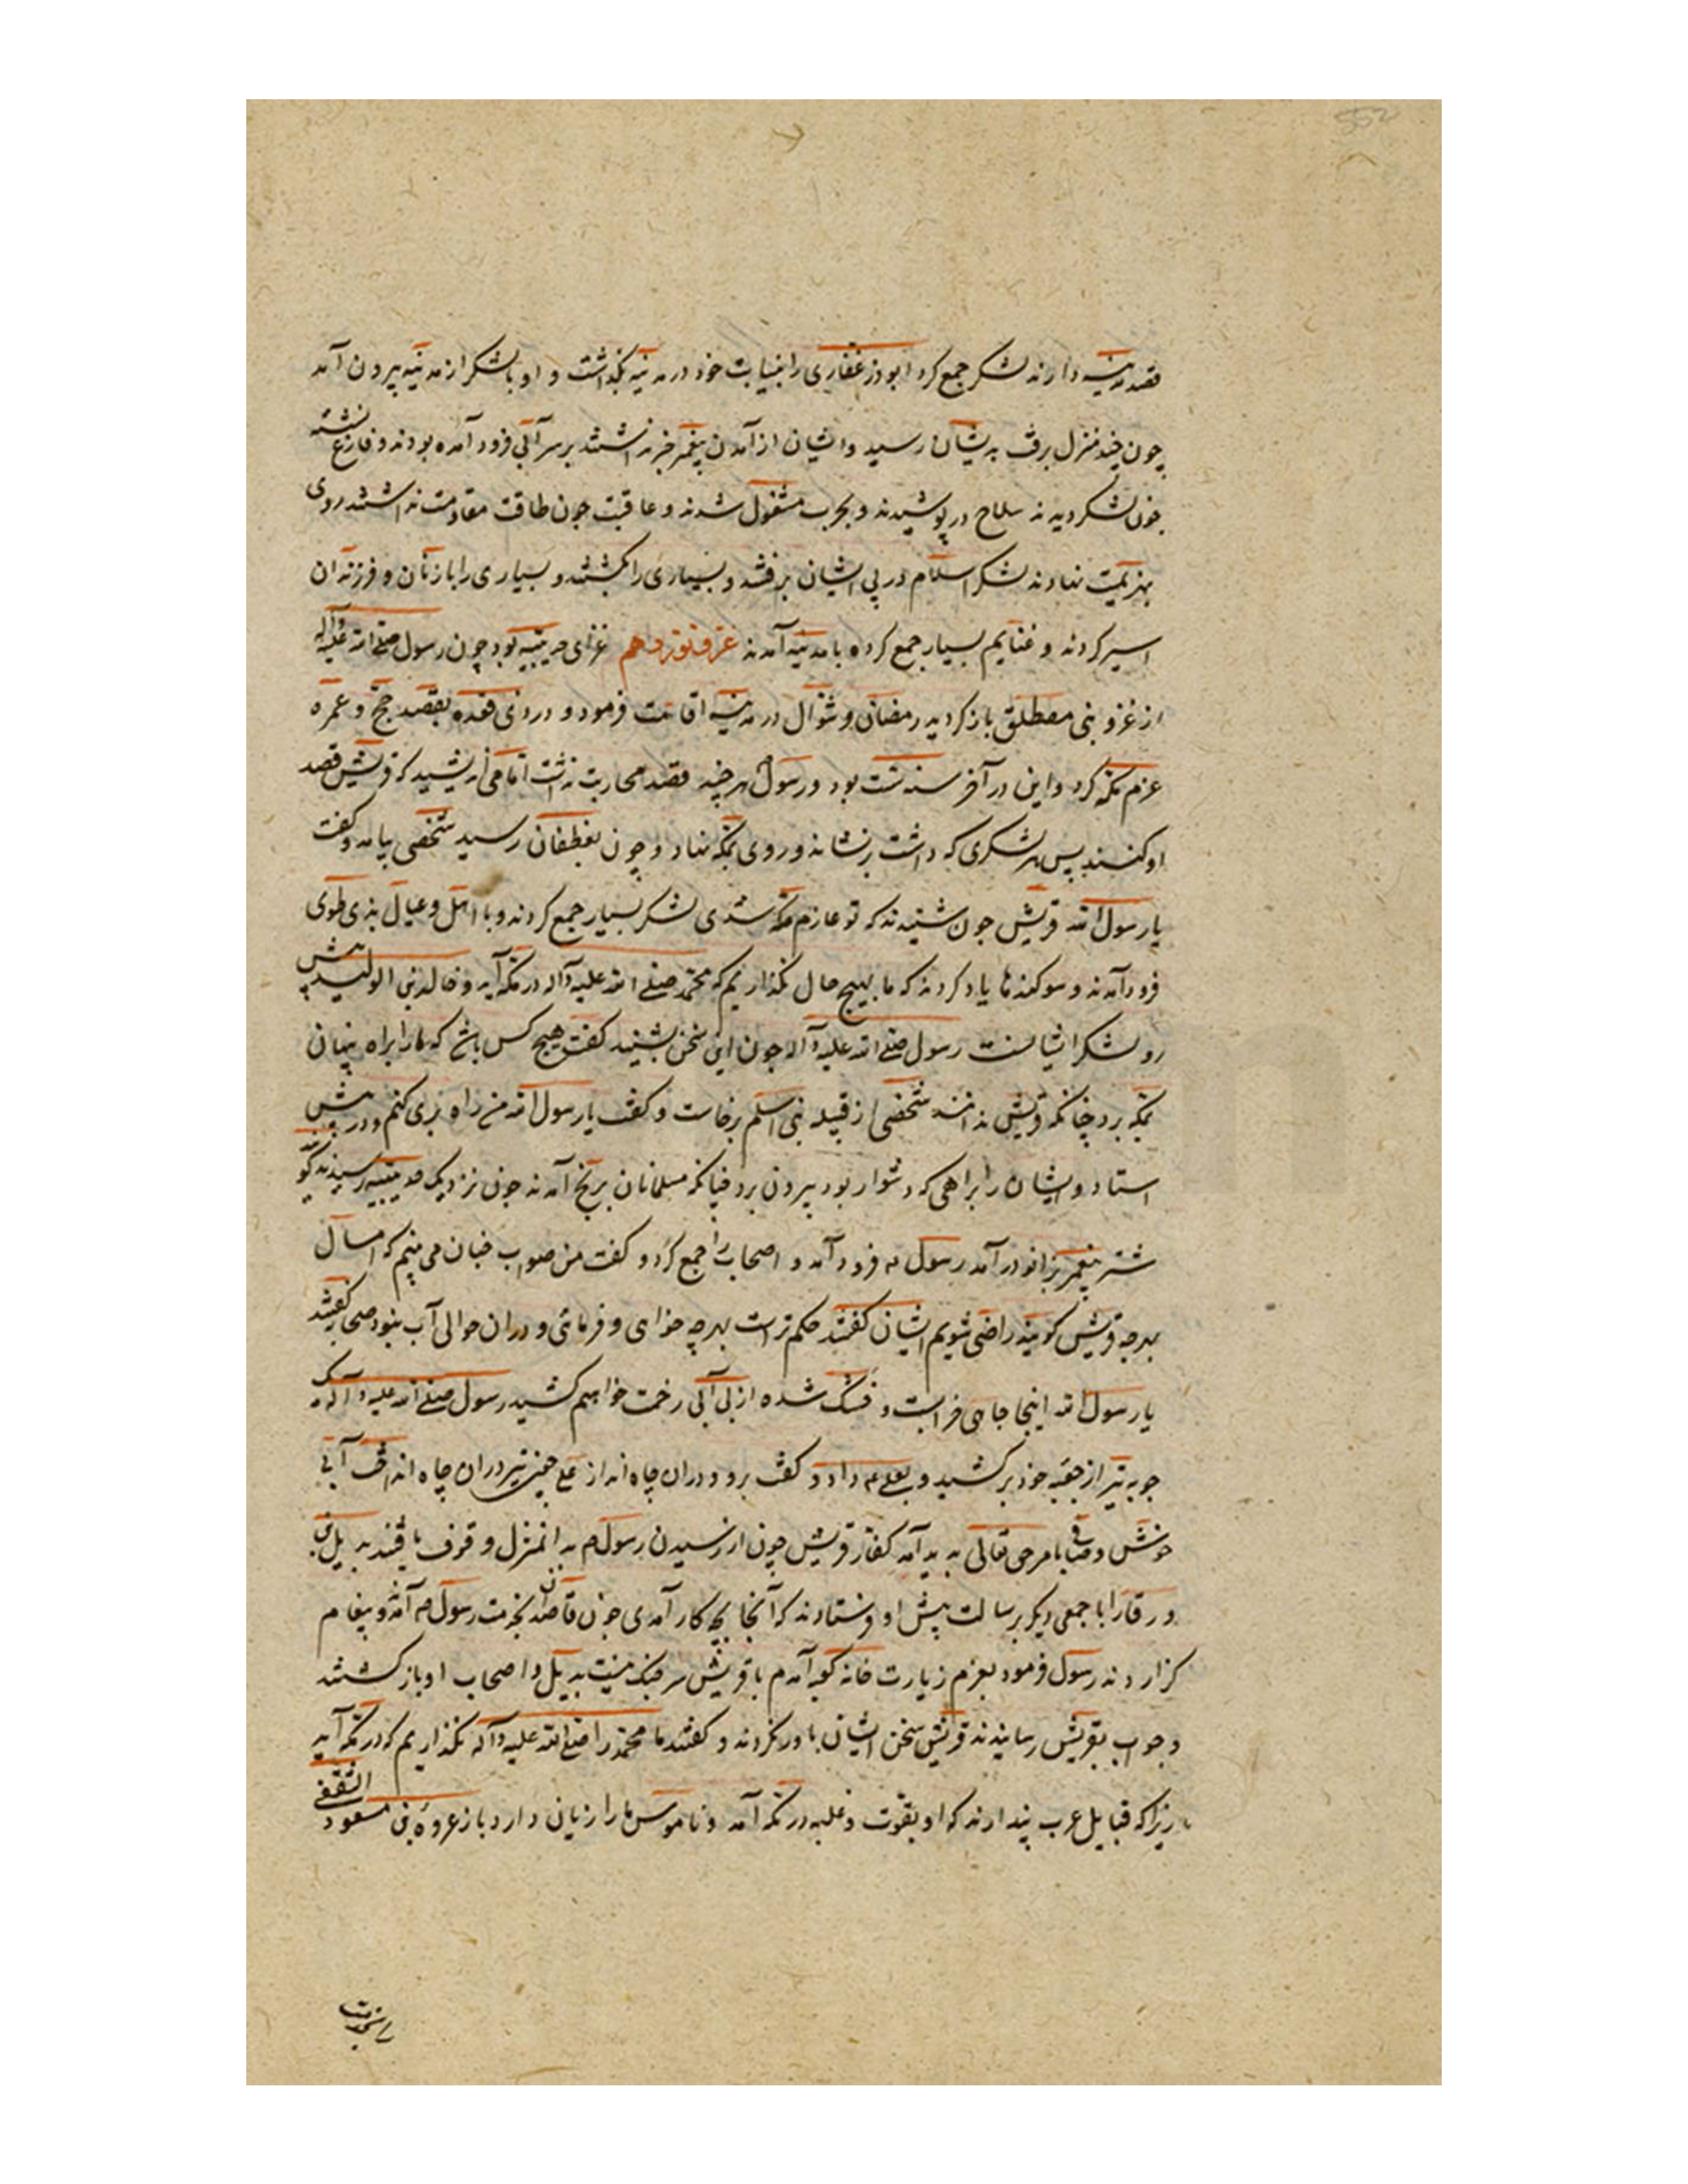 قصد مدینه دارند لشکر جمع کرد ابوذر غفاری را بنیابت خود در مدینه بگذاشت و او با لشکر از مدینه بیرون آمد
چون چند منزل برفت بدیشان رسید و ایشان از آمدن پیغمبر خبر نداشتند بر سر آبی فرود آمده بودند و فارغ نشسته
چون لشکر دیدند سلاح در پوشیدند و بحرب مشغول شدند و عاقبت چون طاقت مقاومت نداشتند روی
بهزیمت نهادند لشکر اسلام در پی ایشان برفتند و بسیاری را بکشتند و بسیاری را با زنان و فرزندان
اسیر کردند و غنایم بسیار جمع کرده با مدینه آمدند غزو نوزدهم غزای حدیبیه بود چون رسول صلی الله علیه وآله
از غزو بنی مصطلق باز کردید رمضان و شوال در مدینه اقامت فرمود و در ذی قعده بقصد حج و عمره
عزم مکه کرد و این در آخر سنه ست بود و رسول هر چند قصد محاربت نداشت اما می اندیشید که قریش قصد
او کنند پس هر لشکری که داشت برنشاند و روی بمکه نهاد و چون بغطفان رسید شخصی بیامد و کفت
یا رسول الله قریش چون شنیدند که تو عازم مکه شدی لشکر بسیار جمع کردند و با اهل و عیال بذی طوی
فرود آمدند و سوکندها یاد کردند که ما بهیچ حال نگذاریم که محمد صلی الله علیه وآله در مکه آید و خالد بن الولید پیش
رو لشکر ایشانست رسول صلی الله علیه وآله چون این سخن بشنید کفت هیچ کس باشد که ما را براه پنهان
بمکه برد چنانکه قریش ندانند شخصی از قبیله بنی اسلم برخاست و کفت یا رسول الله من راه بری کنم و در پیش
استاد و ایشان را براهی که دشوار بود بیرون برد چنانکه مسلمانان برنج آمدند چون نزدیک حدیبیه رسیدند
شتر پیغمبر بزانو در آمد رسول فرود آمد و اصحاب را جمع کرد و کفت من صواب چنان می بینم که امسال
بهرچه قریش کویند راضی شویم ایشان کفتند حکم تراست بهرچه خواهی و فرمائی و در آن حوالی آب نبود صحابه کفتند
یا رسول الله اینجا چاهی خرابست و خشک شده از بی آبی زحمت خواهیم کشید رسول صلی الله علیه وآله یک
چوبه تیر از جعبه خود برکشید و بعلی داد و کفت برو و در آن چاه انداز علی چنین تیر در آن چاه انداخت آبی
خوش و صافی بامر حق تعالی پدید آمد کفار قریش چون از رسیدن رسول بدان منزل وقوف یافتند بدیل بن
ورقا را با جمعی دیکر برسالت پیش او فرستادند که آنجا بچه کار آمدی چون قاصدان بخدمت رسول آمدند و پیغام
کزاردند رسول فرمود بعزم زیارت خانه کعبه آمدم با قریش سر جنک نیست بدیل و اصحاب او باز کشتند
و جواب بقریش رسانیدند قریش سخن ایشان باور نکردند و کفتند ما محمد را صلی الله علیه وآله نگذاریم که در مکه آید
زیرا که قبایل عرب پندارند که او بقوت و غلبه در مکه آمد و ناموس ما را زیان دارد باز عروة بن مسعود الثقفی